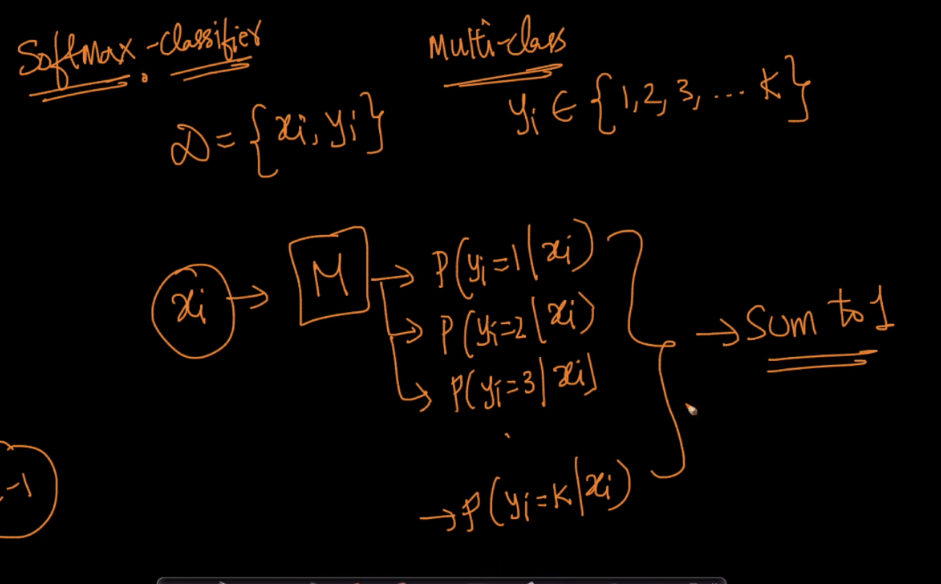 SoftMax-classifier
Multi-class
D = {xi, yi}
yi ∈ {1,2,3,... K}
xi → M → P(yi=1|xi)
→ P(yi=2|xi)
→ P(yi=3|xi)
→ Sum to 1
→ P(yi=K|xi)
-1